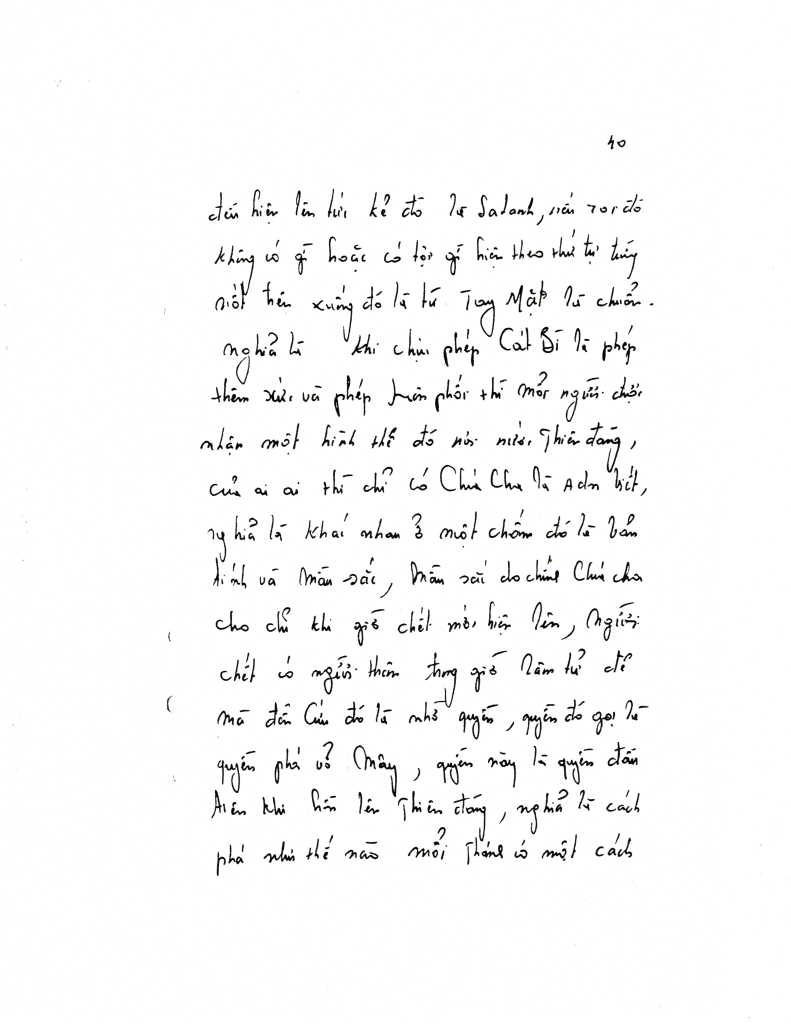 40
đều hiện lên tức kẻ đó là Satanh, nếu rơi đó
không có gì hoặc có tội gì hiện theo thứ tự từng
nốt trên xuống đó là từ Tay Mặt là chuẩn.
nghĩa là khi chịu phép Cát Bí là phép
thêm sức và phép hôn phối thì mỗi người được
nhận một hình thể đó nơi nước Thiên đàng,
của ai ai thì chỉ có Chúa Cha là Adn biết,
nghĩa là khác nhau ở một chấm đó là bản
tính và màu sắc, màu sắc do chính Chúa cha
cho chỉ khi giờ chết mới hiện lên, Người
chết có người thân trong giờ lâm tử để
mà đến Cứu đó là nhờ quyền, quyền đó gọi là
quyền phá vỡ Mây, quyền này là quyền đầu
tiên khi hồn lên Thiên đàng, nghĩa là cách
phá như thế nào mỗi Thánh có một cách